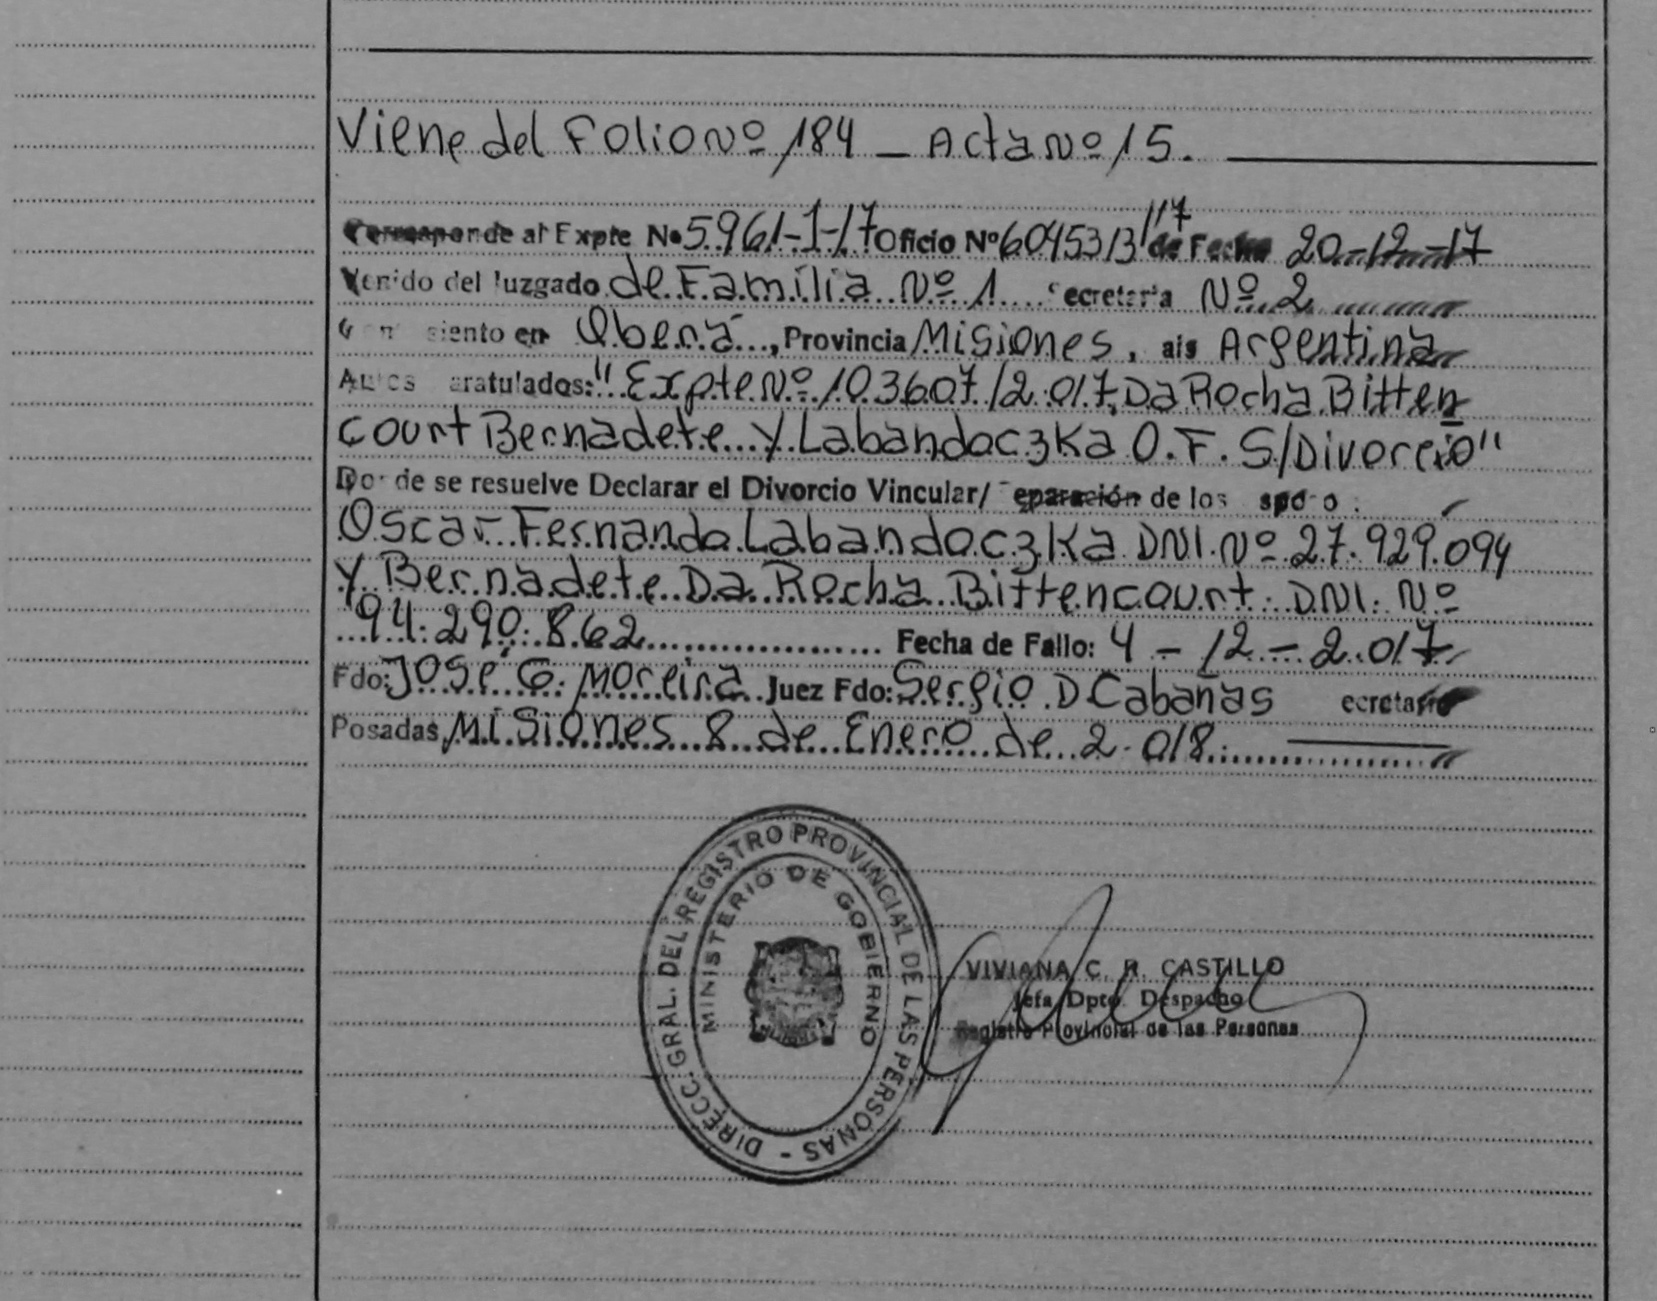 Viene del Folio Nº 184 — Acta Nº 15.
Corresponde al Expte Nº 5961-1-17 Oficio Nº 6045313/17 de Fecha 20-12-17
Venido del Juzgado de Familia Nº 1 Secretaria Nº 2
siento en Oberá, Provincia Misiones, ais Argentina
Autos aratulados: "Expte Nº 103607/2.017, Da Rocha Bitten
court Bernadete y Labandoczka O. F. S/Divorcio"
Donde se resuelve Declarar el Divorcio Vincular/ eparación de los
Oscar Fernando Labandoczka DNI. Nº 27.929.094
y Bernadete Da Rocha Bittencourt. DNI. Nº
94.290.862 Fecha de Fallo: 4-12-2.017
Fdo: José G. Moreira Juez Fdo: Sergio D Cabañas ecretario
Posadas, Misiones 8 de Enero de 2.018.
DIRECC. GRAL. DEL REGISTRO PROVINCIAL DE LAS PERSONAS -
MINISTERIO DE GOBIERNO
VIVIANA C. R. CASTILLO
Jefa Dpto. Despacho
Registro Provincial de las Personas